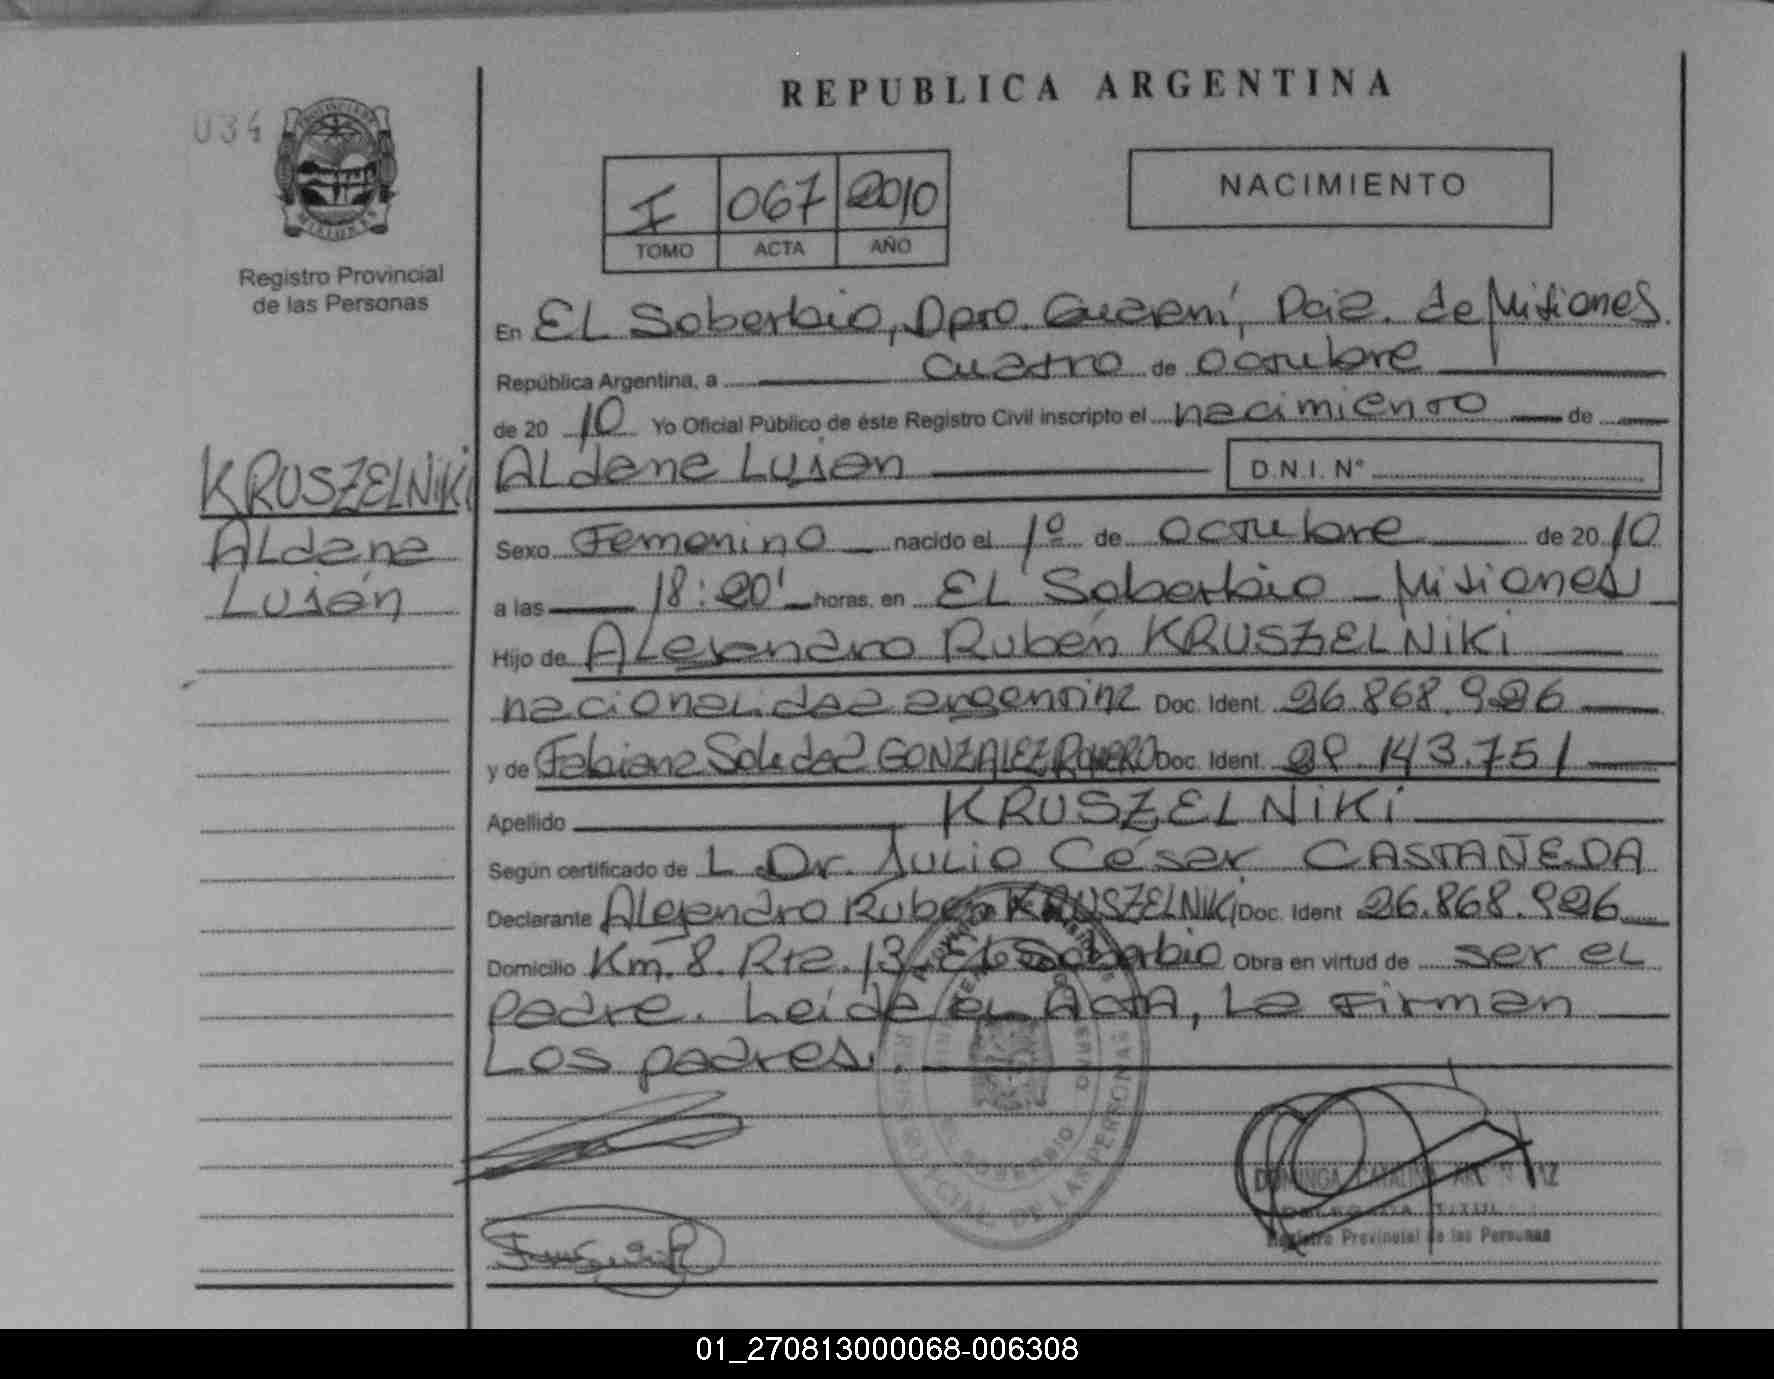 REPUBLICA ARGENTINA
034
I 067 2010
TOMO ACTA AÑO
NACIMIENTO
Registro Provincial
de las Personas
En EL Soberbio, Dpto. Guaraní, Pcia. de Misiones.
República Argentina, a cuatro de octubre
de 2010 Yo Oficial Público de éste Registro Civil inscripto el nacimiento de
KRUSZELNiKi
Aldana
Luján
ALdana Luján D.N.I. Nº
Sexo Femenino nacido el 1º de octubre de 2010
a las 18:20' horas, en EL Soberbio - Misiones
Hijo de ALejandro Rubén KRUSZELNiKi
nacionalidad argentina Doc. Ident. 26.868.926
y de Fabiana Soledad GONZALEZ ROMERO Doc. Ident. 143.751
Apellido KRUSZELNiKi
Según certificado de L Dr. Julio César CASTAÑEDA
Declarante Alejandro Rubén KRUSZELNiKi Doc. Ident 26.868.926
Domicilio Km. 8. Rta. 13 El Soberbio Obra en virtud de ser el
padre. Leida el Acta, La Firman
Los padres.
REGISTRO PROVINCIAL DE LAS PERSONAS
DOMINGA CATALINA
Registro Provincial de las Personas
01_270813000068-006308